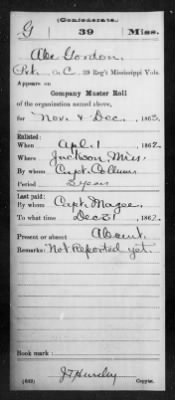 (Confederate.)
G 39 Miss.
Abe Gordon
Pvt., Co. C, 39 Reg't Mississippi Vols.
Appears on
Company Muster Roll
of the organization named above,
for Nov. & Dec., 1862.
Enlisted:
When Apl. 1, 1862.
Where Jackson, Miss
By whom Capt. Collum
Period 3 years
Last paid:
By whom Capt. Magee
To what time Dec 31, 1862.
Present or absent Absent.
Remarks: Not Reported yet.
Book mark:
(642) Copyist.